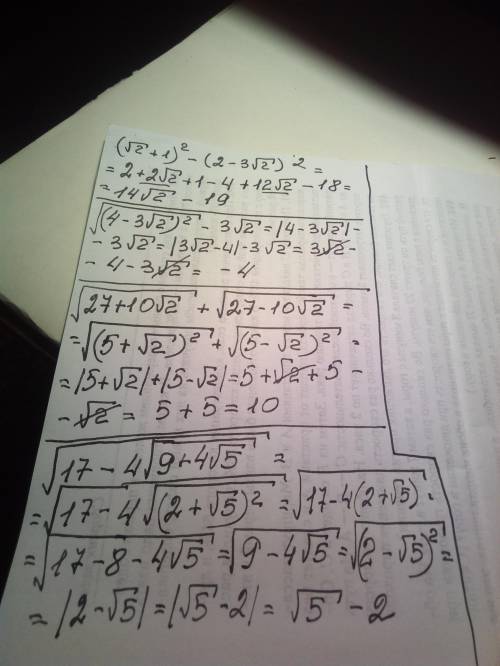 (√2 + 1)² - (2 - 3√2) 2 =
= 2 + 2√2 + 1 - 4 + 12√2 - 18 =
= 14√2 - 19
√((4 - 3√2)²) - 3√2 = |4 - 3√2| -
- 3√2 = |3√2 - 4| - 3√2 = 3√2 -
- 4 - 3√2 = - 4
√(27 + 10√2) + √(27 - 10√2) =
= √((5 + √2)²) + √((5 - √2)²) =
= |5 + √2| + |5 - √2| = 5 + √2 + 5 -
- √2 = 5 + 5 = 10
√(17 - 4√(9 + 4√5)) =
= √(17 - 4√((2 + √5)²)) = √(17 - 4(2 + √5)) =
= √(17 - 8 - 4√5) = √(9 - 4√5) = √((2 - √5)²) =
= |2 - √5| = |√5 - 2| = √5 - 2